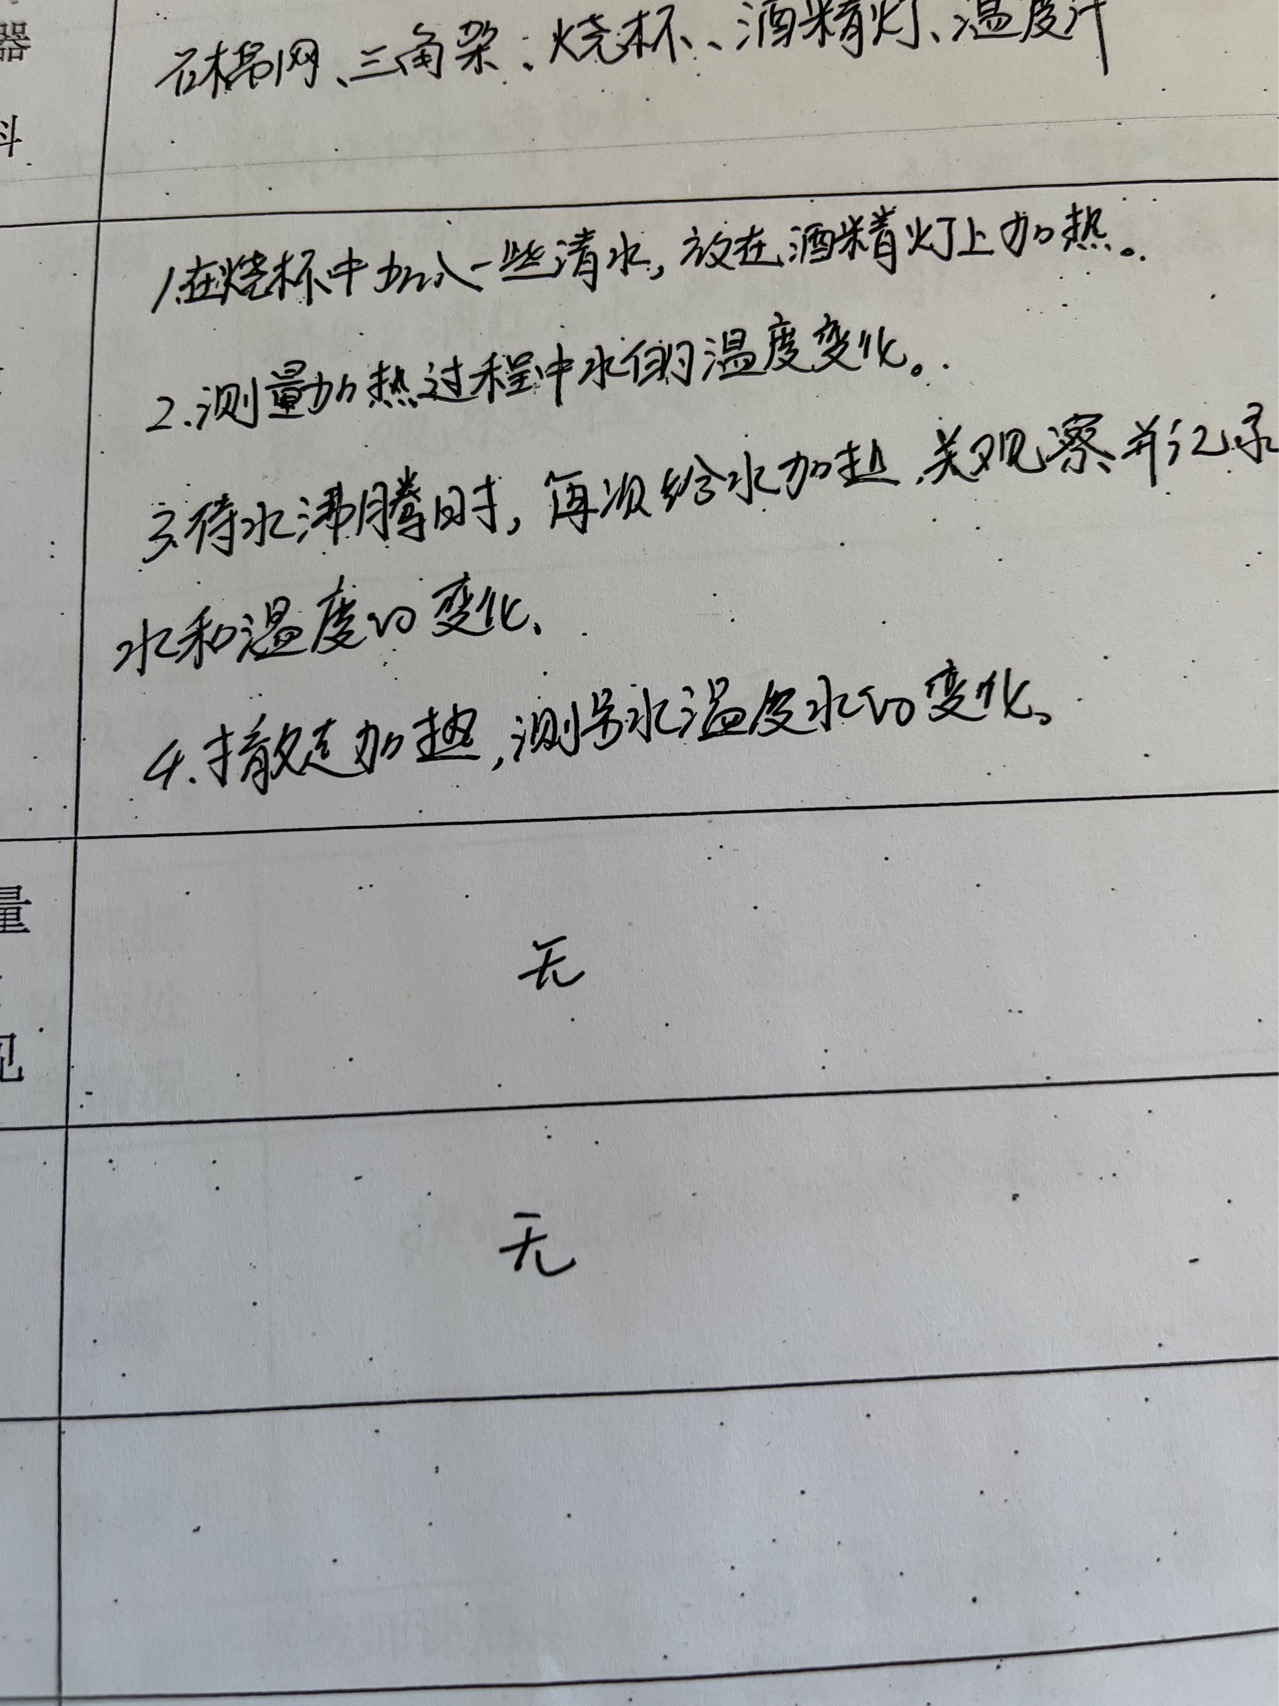 器
石棉网、三角架、烧杯、酒精灯、温度计
料
1.在烧杯中加入一些清水,放在酒精灯上加热。
2.测量加热过程中水的温度变化。
3.待水沸腾时,再次给水加热,观察并记录
水和温度的变化、
4.撤走加热,测水温度水的变化。
量
无
见
无